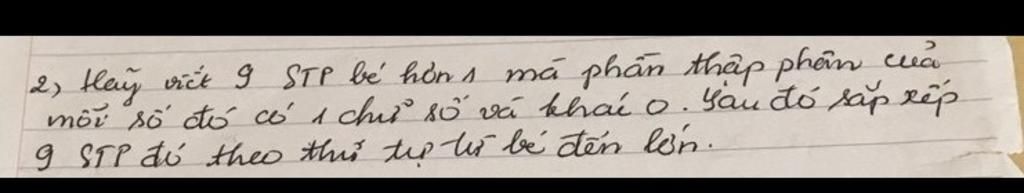 2, Hãy viết 9 STP bé hơn 1 mà phần thập phân của
mỗi số đó có 1 chữ số và khác 0. Sau đó sắp xếp
9 STP đó theo thứ tự từ bé đến lớn.